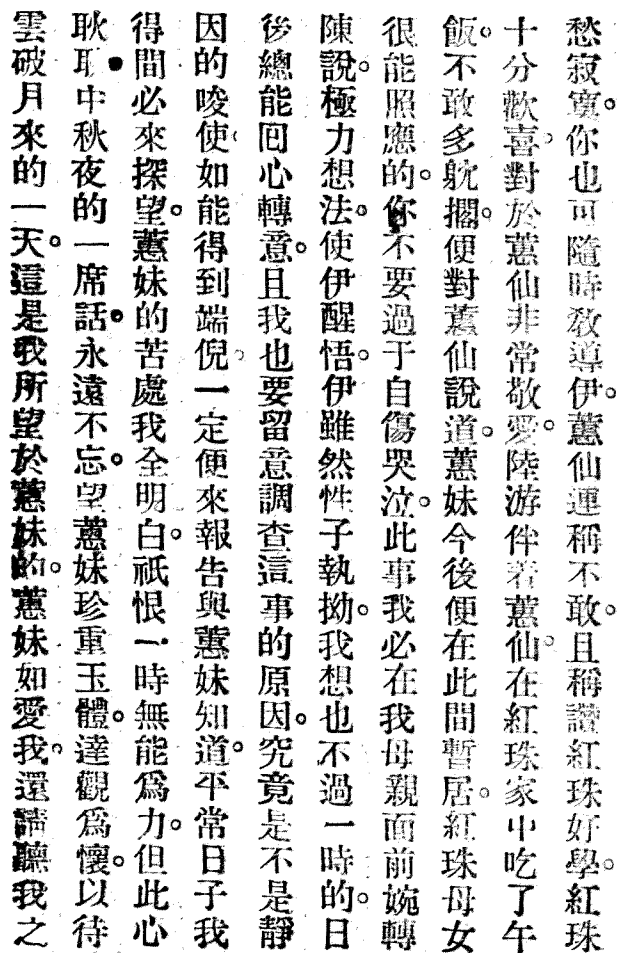 愁寂寞。你也可隨時敎導伊。蕙仙連稱不敢。且稱讚紅珠好學。紅珠
十分歡喜。對於蕙仙非常敬愛。陸游伴着蕙仙。在紅珠家中吃了午
飯。不敢多躭擱。便對蕙仙說道。蕙妹今後便在此間暫居。紅珠母女
很能照應的。你不要過于自傷哭泣。此事我必在我母親面前婉轉
陳說。極力想法。使伊醒悟。伊雖然性子執拗。我想也不過一時的。日
後總能囘心轉意。且我也要留意調查這事的原因。究竟是不是靜
因的唆使。如能得到端倪。一定便來報告與蕙妹知道。平常日子我
得間必來探望。蕙妹的苦處我全明白。祇恨一時無能爲力。但此心
耿耿。中秋夜的一席話。永遠不忘。望蕙妹珍重玉體。達觀爲懷。以待
雲破月來的一天。這是我所望於蕙妹的。蕙妹如愛我。還請聽我之